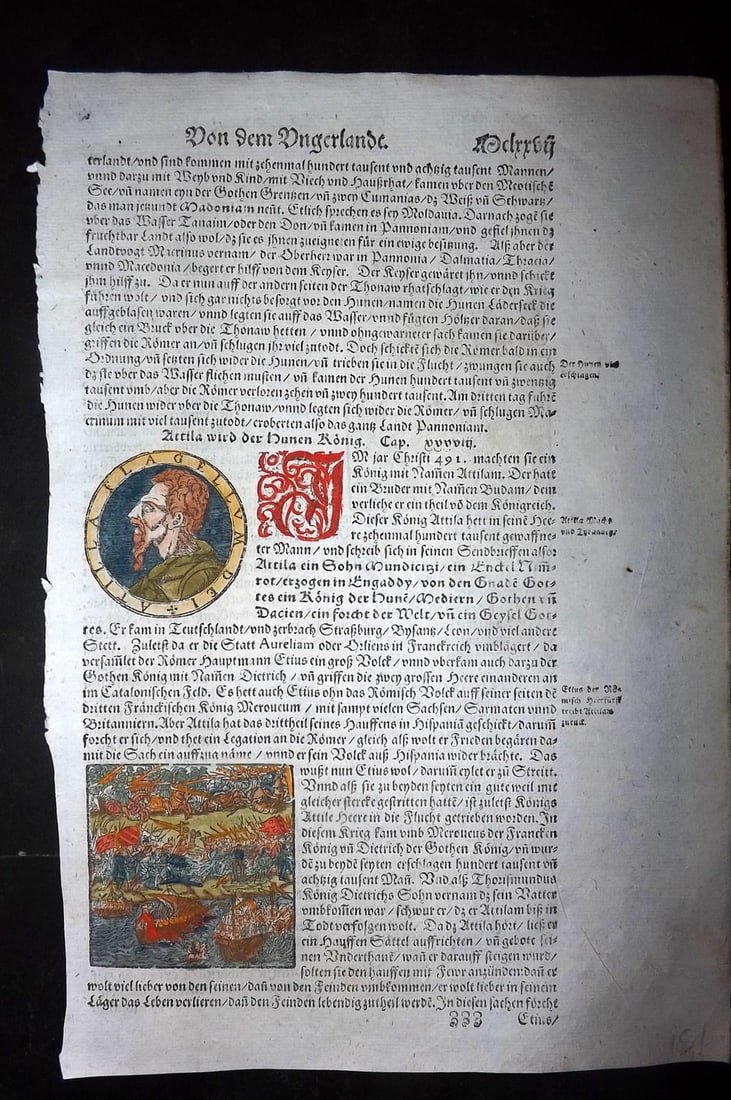 Von dem Vngerlandt.
Mclxxvij
terlandt/vnd sind kommen mit zehenmal hundert tausent vnd achtzig tausent Mannen/
vnnd darzu mit Weyb vnd Kind/mit Viech vnd Haußrhat/kamen vber den Meotischē
See/vñ namen eyn der Gothen Grentzen/vñ zwey Cumanias/dz Weiß vñ Schwartz/
das man jetzund Madoniam neñt. Etlich sprechen es sey Moldauia. Darnach zogē sie
vber das Wasser Tanaim/oder den Don/vñ kamen in Pannoniam/vnd gefiel jhnen dz
fruchtbar Landt also wol/dz sie es jhnen zueigneten für ein ewige besitzung. Alß aber der
Landtvogt Macrinus vernam/der Oberherr war in Pannonia/Dalmatia/Thracia/
vnnd Macedonia/begert er hilff von dem Keyser. Der Keyser gewäret jhn/vnnd schickt
jhm hilff zu. Da er nun auff der andern seiten der Thonaw rhatschlagt/wie er den Krieg
führen wolt/vnd sich gar nichts besorgt vor den Hunen/namen die Hunen Läderseck die
auffgeblasen waren/vnnd legten sie auff das Wasser/vnnd fügten Höltzer daran/daß sie
gleich ein Bruck vber die Thonaw hetten/vnnd ohngewarneter sach kamen sie darüber/
griffen die Römer an/vñ schlugen jhr viel zutodt. Doch schicktē sich die Römer bald in ein
Ordnung/vñ setzten sich wider die Hunen/vñ trieben sie in die Flucht/zwungen sie auch
dz sie vber das Wasser fliehen musten/vñ kamen der Hunen hundert tausent vñ zwentzig
tausent vmb/aber die Römer verloren zehen vñ zwey hundert tausent. Am dritten tag führē
die Hunen wider vber die Thonaw/vnnd legten sich wider die Römer/vñ schlugen Ma-
crinum mit viel tausent zutodt/eroberten also das gantz Landt Pannoniam.
Der Hunen viel
erschlagen.
Attila wird der Hunen König. Cap. xxxviij.
ATTILA FLAGELLVM DEI
IM jar Christi 491. machten sie ein
König mit Nañen Attilam. Der hatt
ein Bruder mit Nañen Budam/dem
verliehe er ein theil võ dem Königreich.
Dieser König Attila hett in seinē Hee-
re zehenmal hundert tausent gewaffne-
ter Mann/vnd schreib sich in seinen Sendbrieffen also:
Attila ein Sohn Mundicizi/ein Enckel Nim-
rot/erzogen in Engaddy/von den Gnadē Got-
tes ein König der Hunē/Mediern/Gothen vñ
Dacien/ein forcht der Welt/vñ ein Geysel Got-
tes. Er kam in Teutschlandt/vnd zerbrach Straßburg/Bysantz/Leon/vnd viel andere
Stett. Zuletst da er die Statt Aureliam oder Orliens in Franckreich vmblägert/da
versamlet der Römer Hauptmann Etius ein groß Volck/vnnd vberkam auch darzu der
Gothen König mit Namen Dietrich/vñ griffen die zwey grossen Heere einanderen an
im Catalonischen Feld. Es hett auch Etius ohn das Römisch Volck auff seiner seiten dē
dritten Fränckischen König Meroueum/mit sampt vielen Sachsen/Sarmaten vnnd
Britanniern. Aber Attila hat das drittheil seines Hauffens in Hispaniā geschickt/darum̃
forcht er sich/vnd thet ein Legation an die Römer/gleich alß wolt er Frieden begären da-
mit die Sach ein auffzug näme/vnnd er sein Volck auß Hispania wider brächte. Das
Attila Macht
vnd Tyranney.
Etius der Rö-
misch Heerfürst
treibt Attilam
zuruck.
wußt nun Etius wol/darum̃ eylet er zů Streitt.
Vnnd alß sie zu beyden seyten ein gute weil mit
gleicher stercke gestritten hattē/ist zuletst Königs
Attile Heere in die Flucht getrieben worden. In
diesem Krieg kam vmb Meroueus der Francken
König vñ Dietrich der Gothen König/vñ wur-
dē zu beydē seyten erschlagen hundert tausent vñ
achtzig tausent Mañ. Vnd alß Thorismundus
König Dietrichs Sohn vernam dz sein Vatter
vmbkom̃en war/schwur er/dz er Attilam biß in
Todt verfolgen wolt. Da dz Attila hört/ließ er
ein Hauffen Sättel auffrichten/vñ gebote sei-
nen Vnderthanē/wañ er darauff steigen wurd/
solten sie den hauffen mit Fewr anzünden: dañ er
wolt viel lieber von den seinen/dañ von den Feinden vmbkommen/er wolt lieber in seinem
Läger das Leben verlieren/dañ den Feinden lebendig zutheil werdē. In diesen sachen förcht
333
Etius/
151